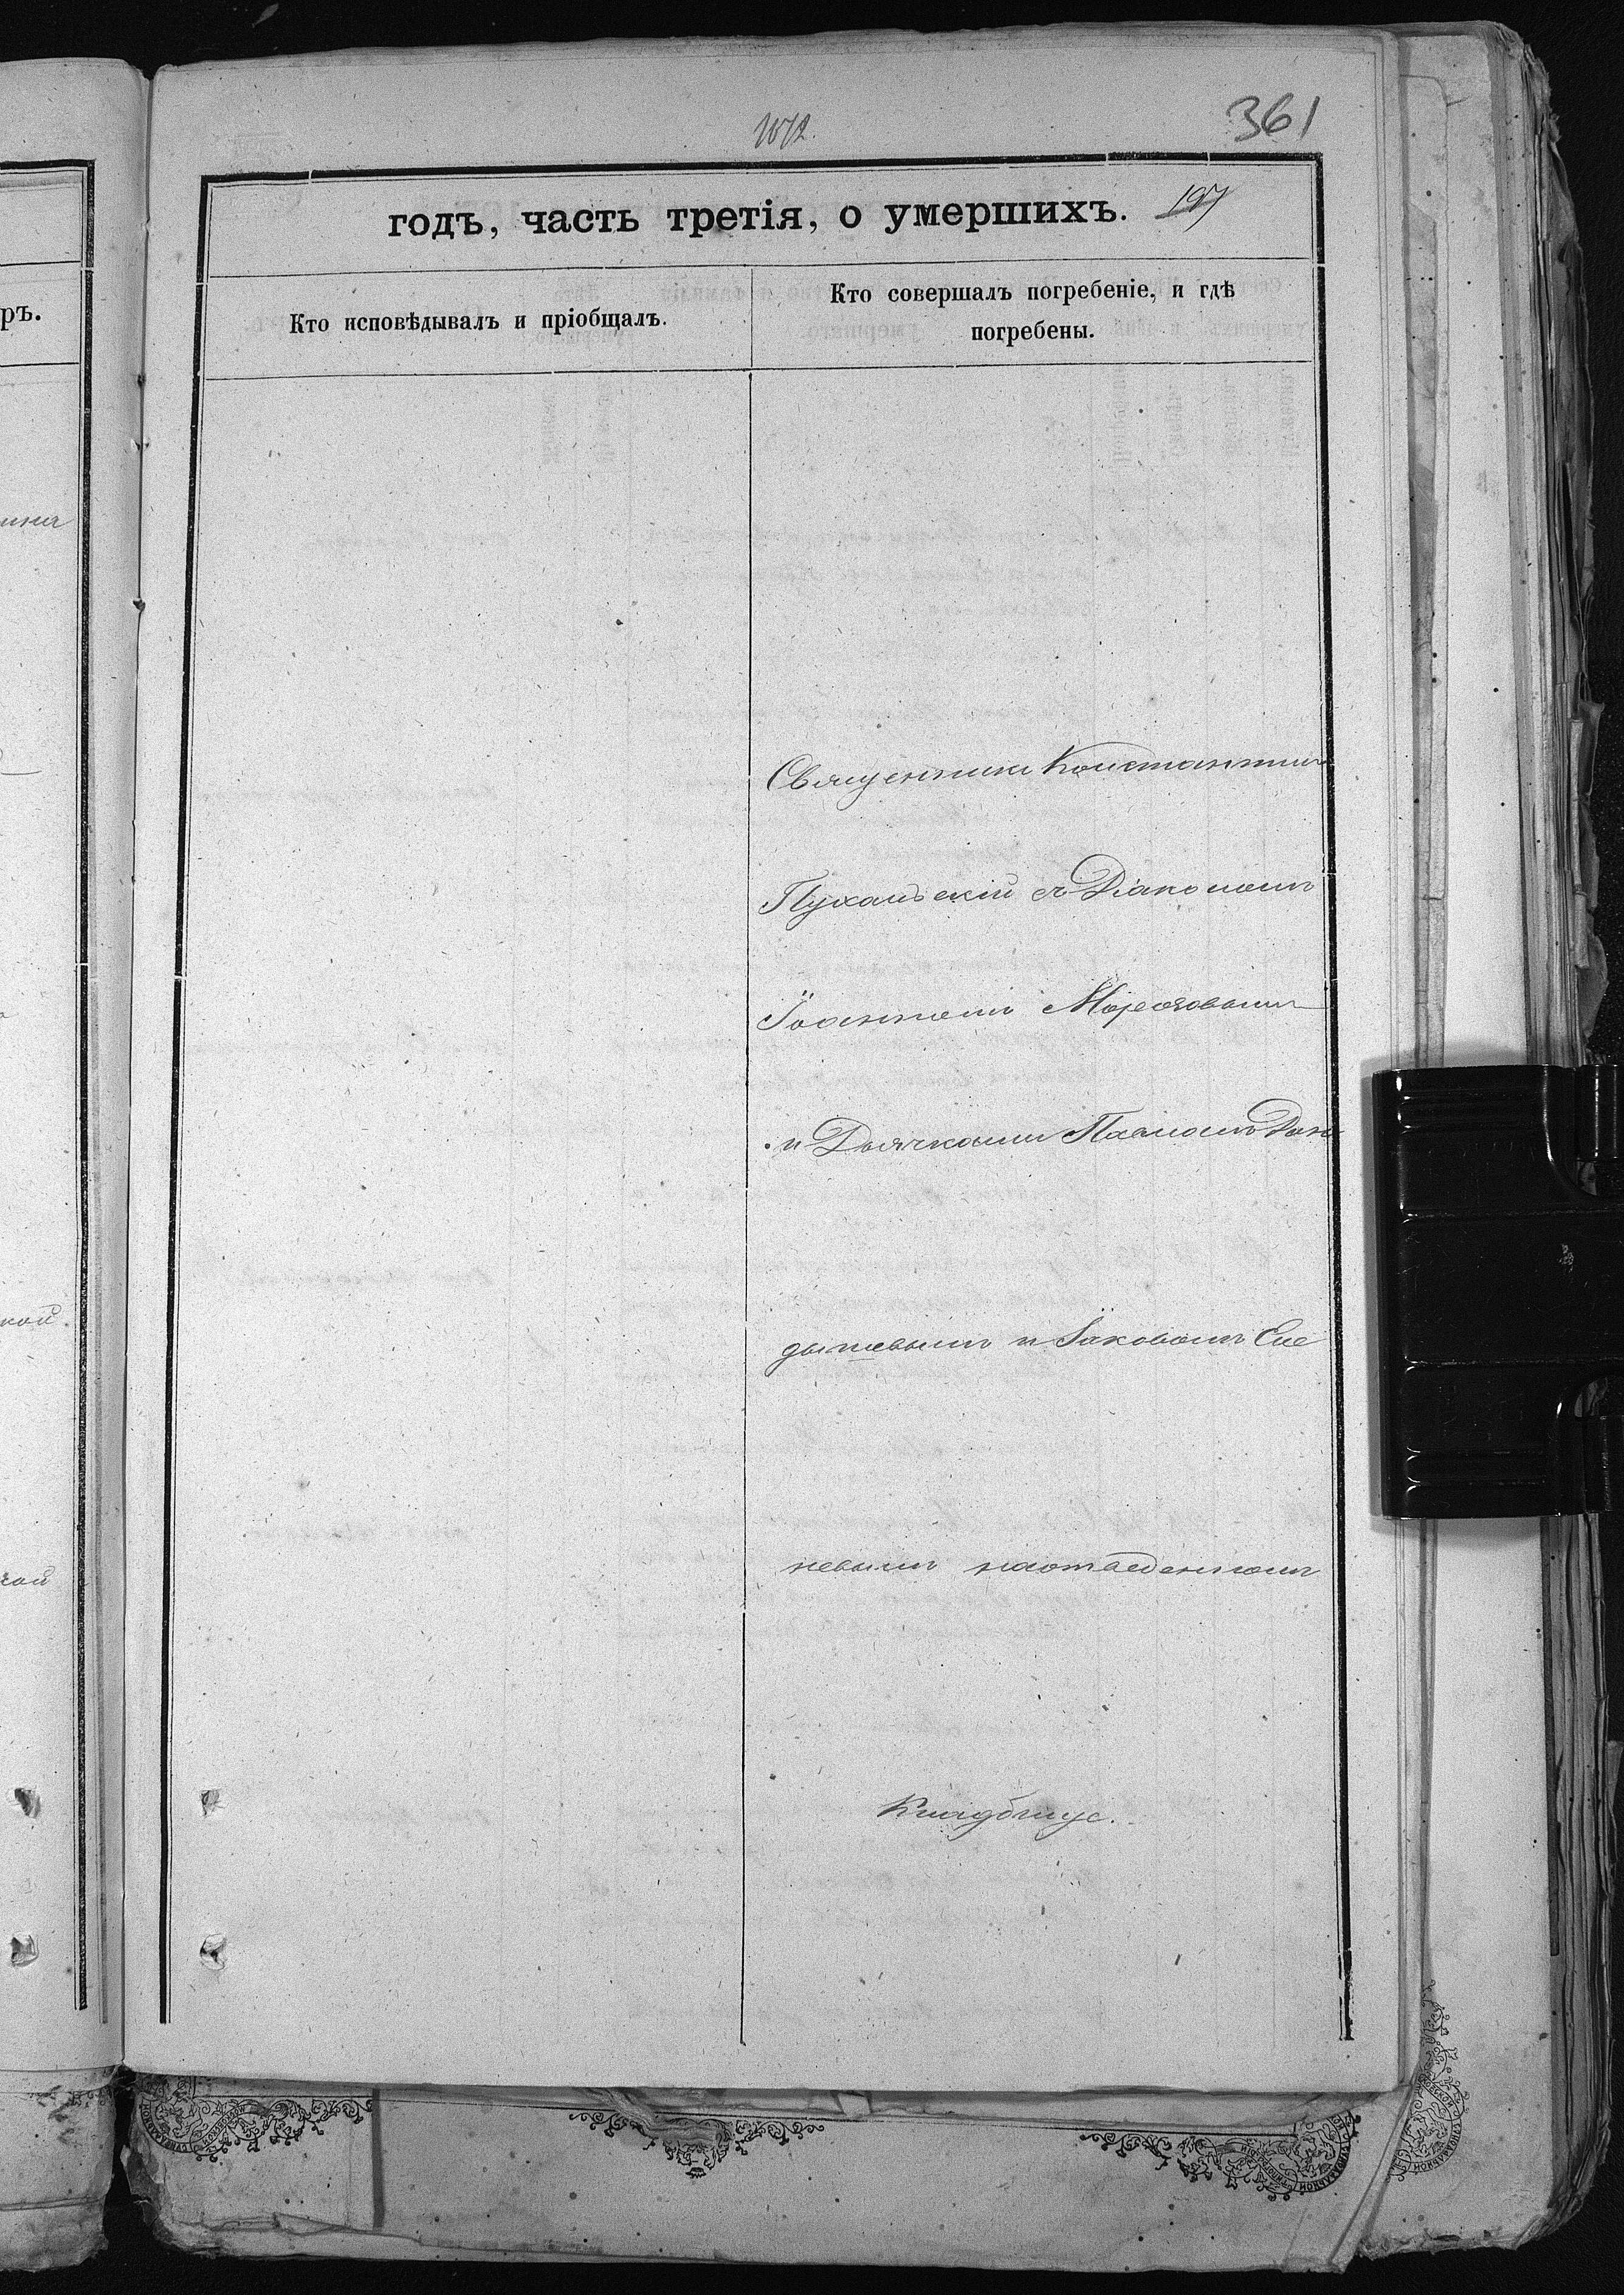 361
1872.
годъ, часть третія, о умершихъ. 197
Кто исповѣдывалъ и пріобщалъ.
Кто совершалъ погребеніе, и гдѣ
погребены.
ръ.
Священникъ Константинъ
Пухальскій съ Діакономъ
Іоанномъ Морозовымъ
и Дьячками Павломъ
и Іаковомъ Еле
невымъ наотведенномъ
Кладбище.
кой